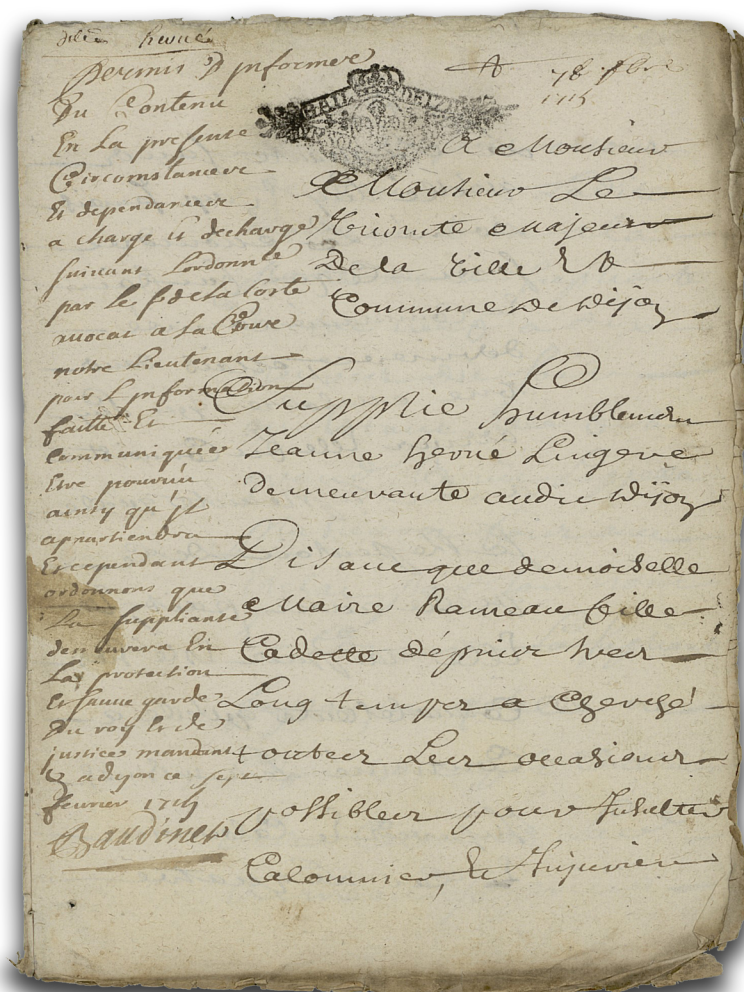 dlle Hervué
permis d'jnformer
Du Contenu
En La presente
Circomstances
Et dependances
a charge et decharge
suivant Lordonnce
par le sr de La Coste
avocat a La Cour
notre Lieutenant
pour L'jnformation
faitte Et
Communiquée
Estre pourvûu
ainsy qu'jl
appartiendra
Et cependant
ordonnons que
La suppliante
demeurera En
La protection
Et sauve garde
Du roy Et de
justice mandant
&c a dijon ce sept
fevrier 1715
Baudinet
7e fbre
1715
A Monsieur
Monsieur Le
Vicomte Majeur
De La Ville Et
Commune de Dijon
Supplie humblement
Jeanne hervé Lingere
Demeurante audit Dijon
Disant que demoiselle
Marie Rameau fille
Cadette dépuis tres
Long temps a Cherché
touttes Les occasions
possibles pour Insulter
Calomnier, Et Injurier